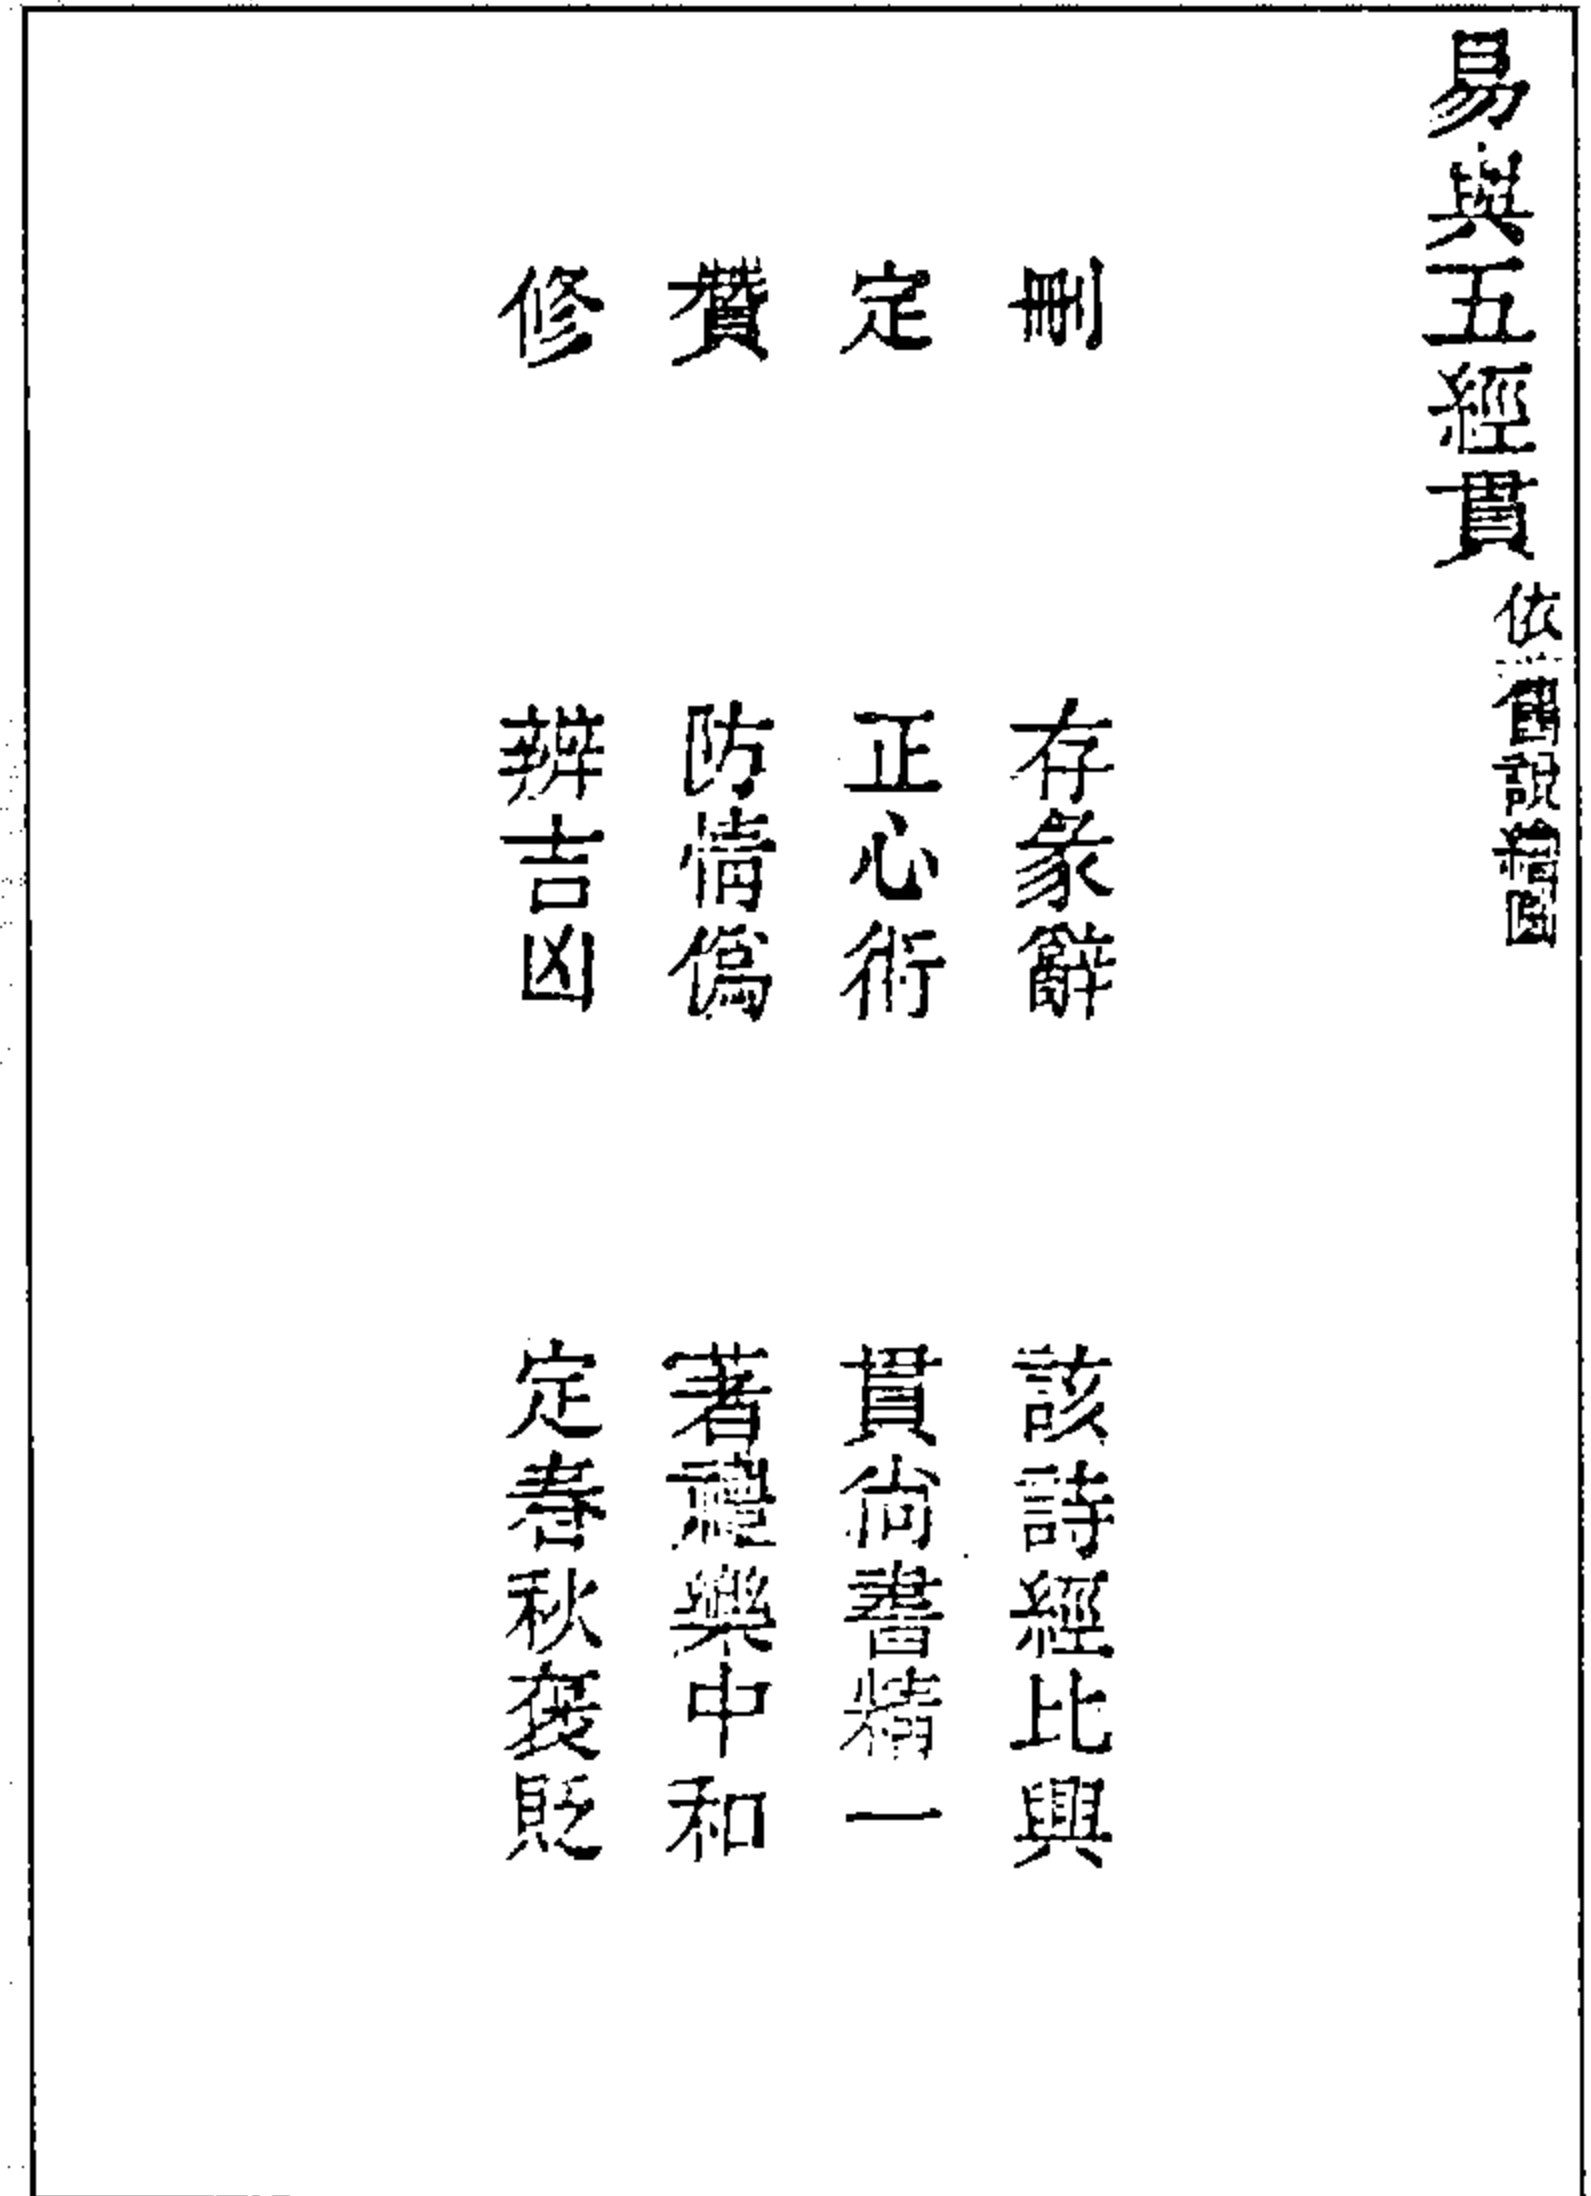 易與五經貫依舊說繪圖
刪 存彖辭 該詩經比興
定 正心術 貫尚書精一
贊 防情僞 著禮樂中和
修 辨吉凶 定春秋褒貶